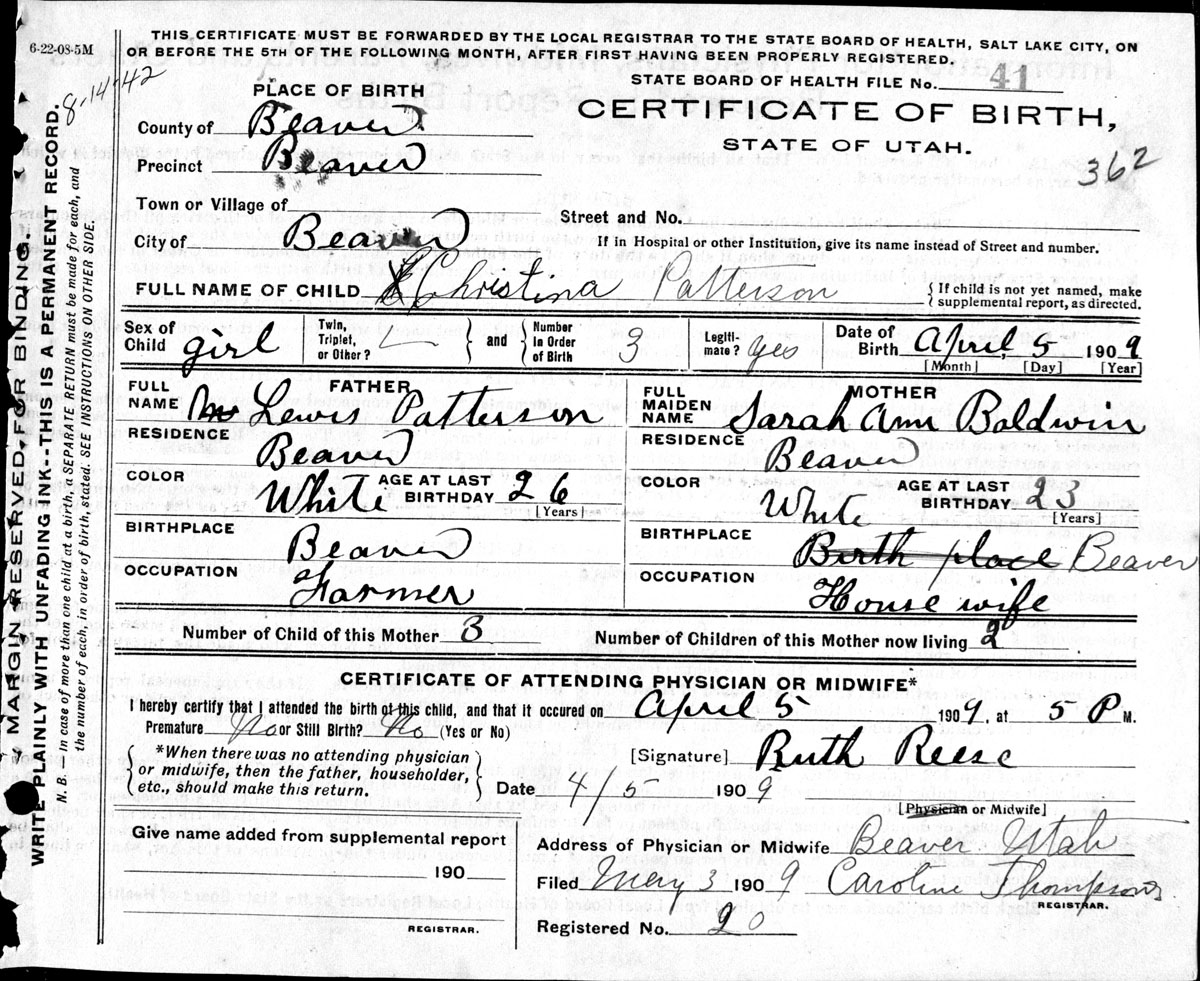 6-22-08-5M
THIS CERTIFICATE MUST BE FORWARDED BY THE LOCAL REGISTRAR TO THE STATE BOARD OF HEALTH, SALT LAKE CITY, ON
OR BEFORE THE 5TH OF THE FOLLOWING MONTH, AFTER FIRST HAVING BEEN PROPERLY REGISTERED.
STATE BOARD OF HEALTH FILE No. 41
8-14-42
PLACE OF BIRTH
CERTIFICATE OF BIRTH,
STATE OF UTAH.
362
County of Beaver
Precinct Beaver
Town or Village of
Street and No.
City of Beaver
If in Hospital or other Institution, give its name instead of Street and number.
FULL NAME OF CHILD Christina Patterson
{ If child is not yet named, make
{ supplemental report, as directed.
Sex of Child girl
Twin, Triplet, or Other?
and
Number in Order of Birth 3
Legiti-mate? yes
Date of Birth April 5 1909
[Month] [Day] [Year]
FATHER
FULL NAME Lewis Patterson
RESIDENCE Beaver
COLOR White AGE AT LAST BIRTHDAY 26
[Years]
BIRTHPLACE Beaver
OCCUPATION Farmer
MOTHER
FULL MAIDEN NAME Sarah Ann Baldwin
RESIDENCE Beaver
COLOR White AGE AT LAST BIRTHDAY 23
[Years]
BIRTHPLACE Birth place Beaver
OCCUPATION House wife
Number of Child of this Mother 3
Number of Children of this Mother now living 2
CERTIFICATE OF ATTENDING PHYSICIAN OR MIDWIFE*
I hereby certify that I attended the birth of this child, and that it occured on April 5 1909, at 5 P M.
Premature No or Still Birth? No (Yes or No)
*When there was no attending physician
or midwife, then the father, householder,
etc., should make this return.
[Signature] Ruth Reese
Date 4/5 1909
[Physician or Midwife]
Give name added from supplemental report
190
REGISTRAR.
Address of Physician or Midwife Beaver Utah
Filed May 3 1909 Caroline Thompson
REGISTRAR.
Registered No. 20
MARGIN RESERVED FOR BINDING.
WRITE PLAINLY WITH UNFADING INK--THIS IS A PERMANENT RECORD.
N. B. — In case of more than one child at a birth, a SEPARATE RETURN must be made for each, and
the number of each, in order of birth, stated. SEE INSTRUCTIONS ON OTHER SIDE.